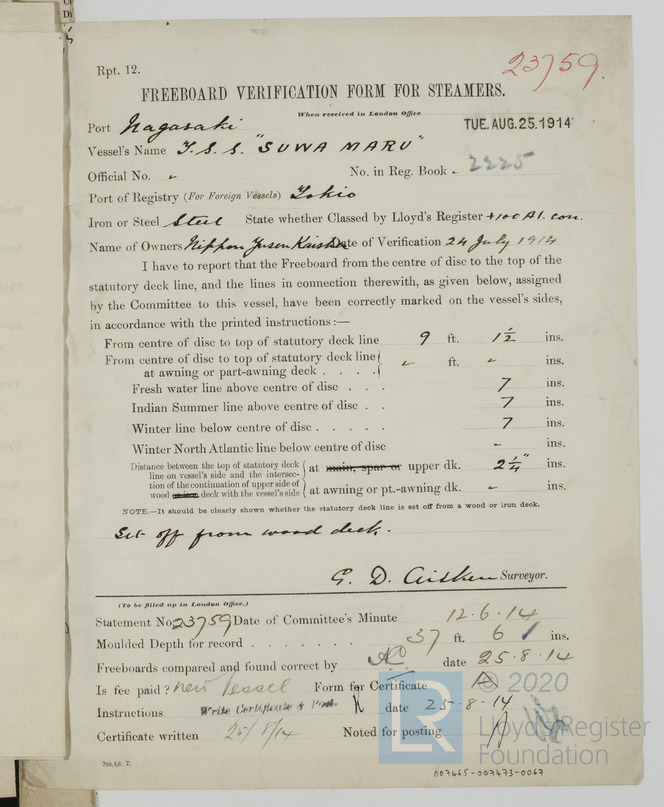 Rpt. 12.
23759.
FREEBOARD VERIFICATION FORM FOR STEAMERS.
When received in London Office
Port Nagasaki
TUE. AUG. 25. 1914
Vessel's Name T.S.S. "SUWA MARU"
Official No. No. in Reg. Book 2225
Port of Registry (For Foreign Vessels) Tokio
Iron or Steel Steel State whether Classed by Lloyd's Register +100 A1. con.
Name of Owners Nippon Yusen Kaisha Date of Verification 24 July 1914
I have to report that the Freeboard from the centre of disc to the top of the
statutory deck line, and the lines in connection therewith, as given below, assigned
by the Committee to this vessel, have been correctly marked on the vessel's sides,
in accordance with the printed instructions :—
From centre of disc to top of statutory deck line 9 ft. 1½ ins.
From centre of disc to top of statutory deck line
at awning or part-awning deck . . . . ft. ins.
Fresh water line above centre of disc . . . 7 ins.
Indian Summer line above centre of disc . . 7 ins.
Winter line below centre of disc . . . . . 7 ins.
Winter North Atlantic line below centre of disc ins.
Distance between the top of statutory deck
line on vessel's side and the intersec-
tion of the continuation of upper side of
wood deck with the vessel's side
at main, spar or upper dk. 2¼" ins.
at awning or pt.-awning dk. ins.
NOTE.—It should be clearly shown whether the statutory deck line is set off from a wood or iron deck.
Set off from wood deck.
G. D. Aitken Surveyor.
(To be filled up in London Office.)
Statement No. 23759 Date of Committee's Minute 12.6.14
Moulded Depth for record . . . . . . . 37 ft. 6 ins.
Freeboards compared and found correct by date 25.8.14
Is fee paid ? new Vessel Form for Certificate A
Instructions Write Certificate & Post. date 25-8-14
Certificate written 25/8/14 Noted for posting
Bm,4,6. T.
© 2020
LR
Lloyd's Register
Foundation
007465-007473-0067